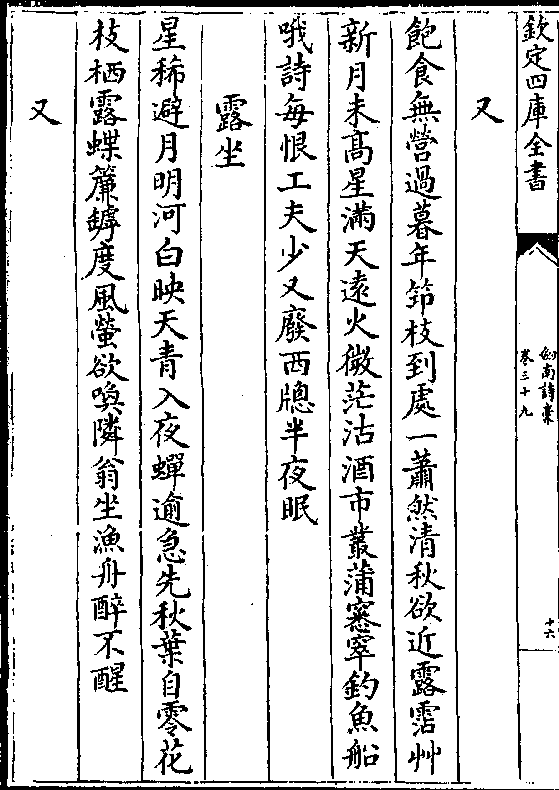 欽定四庫全書
劍南詩稾
卷三十九
十六
又
飽食無營過暮年筇枝到處一蕭然清秋欲近露霑艸
新月未髙星滿天遠火微茫沽酒市叢蒲窸窣釣魚船
哦詩每恨工夫少又廢西牎半夜眠
露坐
星稀避月明河白映天青入夜蟬逾急先秋葉自零花
枝栖露蝶簾罅度風螢欲喚隣翁坐漁舟醉不醒
又